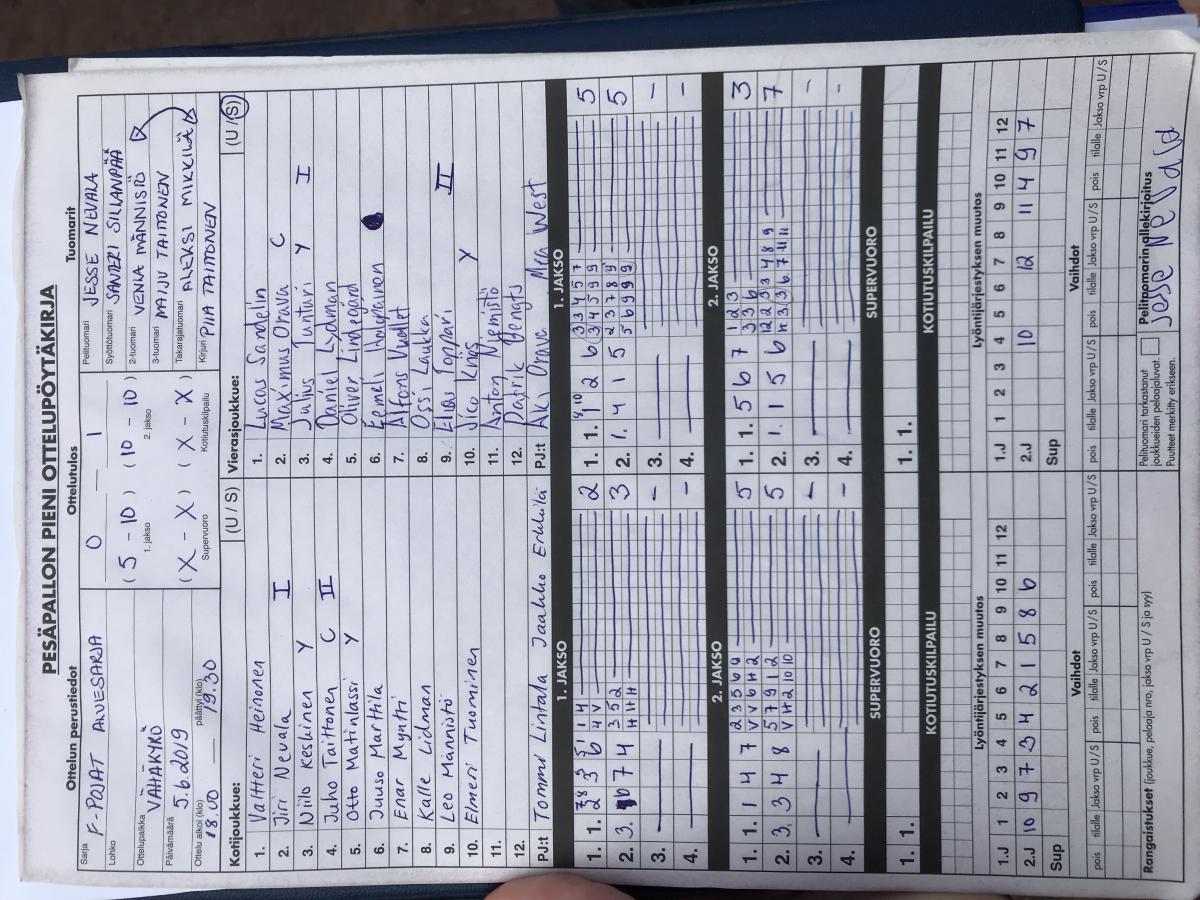 PESÄPALLON PIENI OTTELUPÖYTÄKIRJA
Ottelun perustiedot
Sarja F-POJAT ALUESARJA
Lohko
Ottelupaikka VÄHÄKYRÖ
Päivämäärä 5.6.2019
Ottelu alkoi (klo) 18.00 päättyi (klo) 19.30
Ottelutulos
0 — 1
(5 - 10) (10 - 10)
1. jakso 2. jakso
(X - X) (X - X)
Supervuoro Kotiutuskilpailu
Tuomarit
Pelituomari JESSE NEVALA
Syöttötuomari SANTERI SILLANPÄÄ
2-tuomari VENLA MÄNNISTÖ
3-tuomari MAIJU TAITONEN
Takarajatuomari ALEKSI MIKKILÄ
Kirjuri PIIA TAITONEN
Kotijoukkue: (U / S)
1. Valtteri Heinonen
2. Jiri Nevala I
3. Niilo Keskinen Y
4. Juho Taittonen C II
5. Otto Matinlassi Y
6. Juuso Marttila
7. Enar Myntti
8. Kalle Lidman
9. Leo Männistö
10. Elmeri Tuominen
11.
12.
PJ:t Tommi Lintala Jaakko Erkkilä
Vierasjoukkue: (U / S)
1. Lucas Sandelin
2. Maximus Orava C
3. Julius Junturi Y I
4. Daniel Lydman
5. Oliver Lindegård
6. Eemeli
7. Alfons
8. Ossi Laukka
9. Elias Toppari II
10. Y
11. Anton Niemistö
12. Patrik Bengts
PJ:t Aki Orava West
1. JAKSO
1. 1. 2 3 6 2
2. 3. 6 7 4 3 5 2 3
3. — -
4. — -
2. JAKSO
1. 1. 1 4 7 2 3 5 6 9 5
V V 6 H 2
2. 3. 3 4 8 5 7 9 1 2 5
V H 2 10 10
3. — -
4. — -
SUPERVUORO
1. 1.
KOTIUTUSKILPAILU
1. JAKSO
1. 1. 1 2 6 3 3 4 5 7 5
3 4 5 9 9
2. 1. 4 1 5 2 3 7 8 9 5
5 6 9 9 9
3. — -
4. — -
2. JAKSO
1. 1. 5 6 7 1 2 3 3
3 3 6
2. 1. 1 5 6 12 2 3 3 4 8 9 7
H 3 3 6 7 11 11
3. — -
4. — -
SUPERVUORO
1. 1.
KOTIUTUSKILPAILU
Lyöntijärjestyksen muutos
1.J 1 2 3 4 5 6 7 8 9 10 11 12
2.J 10 9 7 3 4 2 1 5 8 6
Sup
Lyöntijärjestyksen muutos
1.J 1 2 3 4 5 6 7 8 9 10 11 12
2.J 10 12 11 4 9 7
Sup
Vaihdot
pois tilalle Jakso vrp U/S pois tilalle Jakso vrp U/S pois tilalle Jakso vrp U/S
Vaihdot
pois tilalle Jakso vrp U/S pois tilalle Jakso vrp U/S pois tilalle Jakso vrp U/S
Rangaistukset (joukkue, pelaaja nro, jakso vrp U / S ja syy)
Pelituomari tarkastanut
joukkueiden pelaajaluvat.
Puutteet merkitty erikseen.
Pelituomarin allekirjoitus
Jesse Nevala